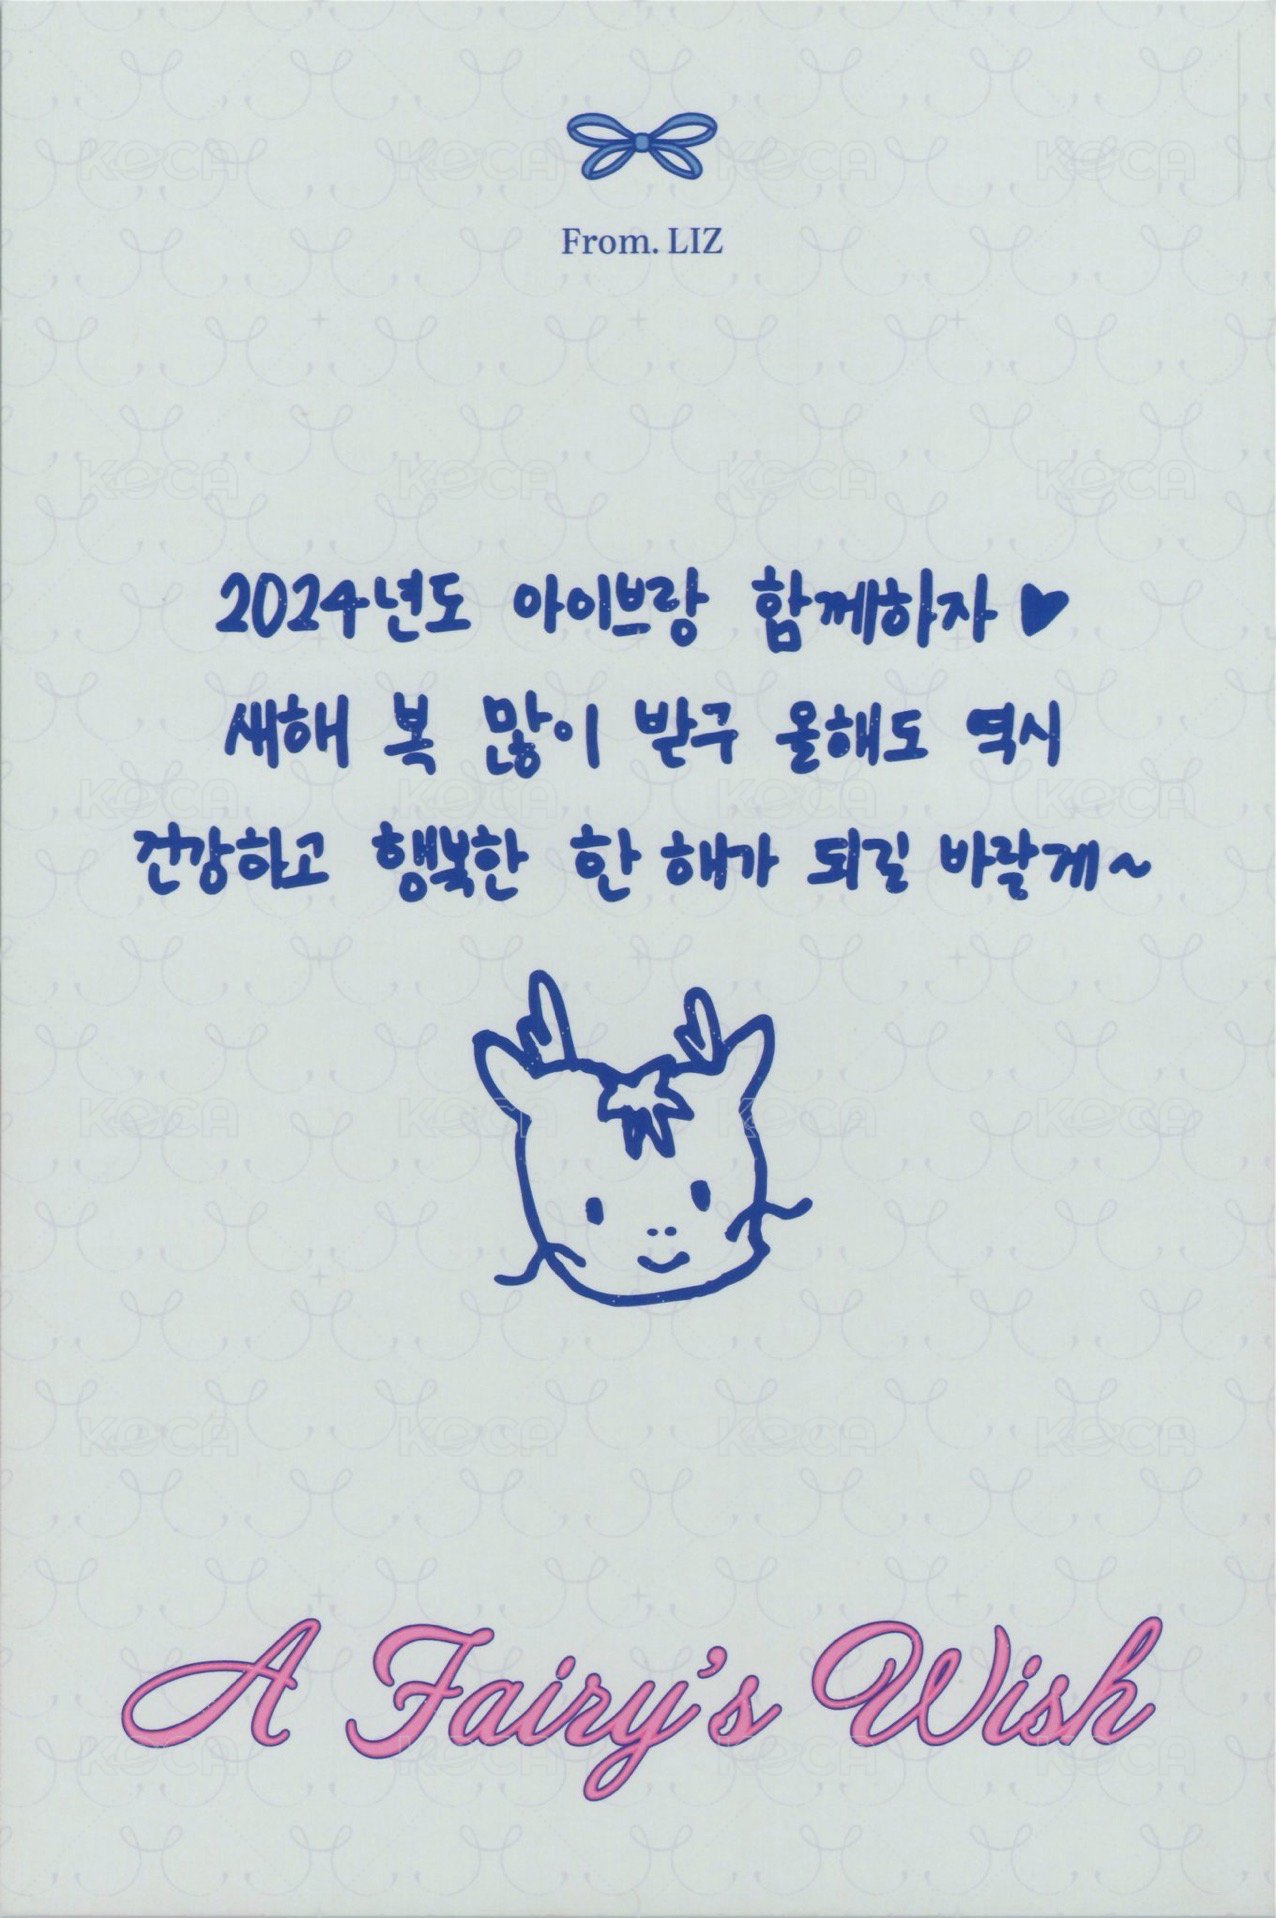 From. LIZ
2024년도 아이브랑 함께하자 ♥
새해 복 많이 받구 올해도 역시
건강하고 행복한 한 해가 되길 바랄게~
A Fairy's Wish
KOCA